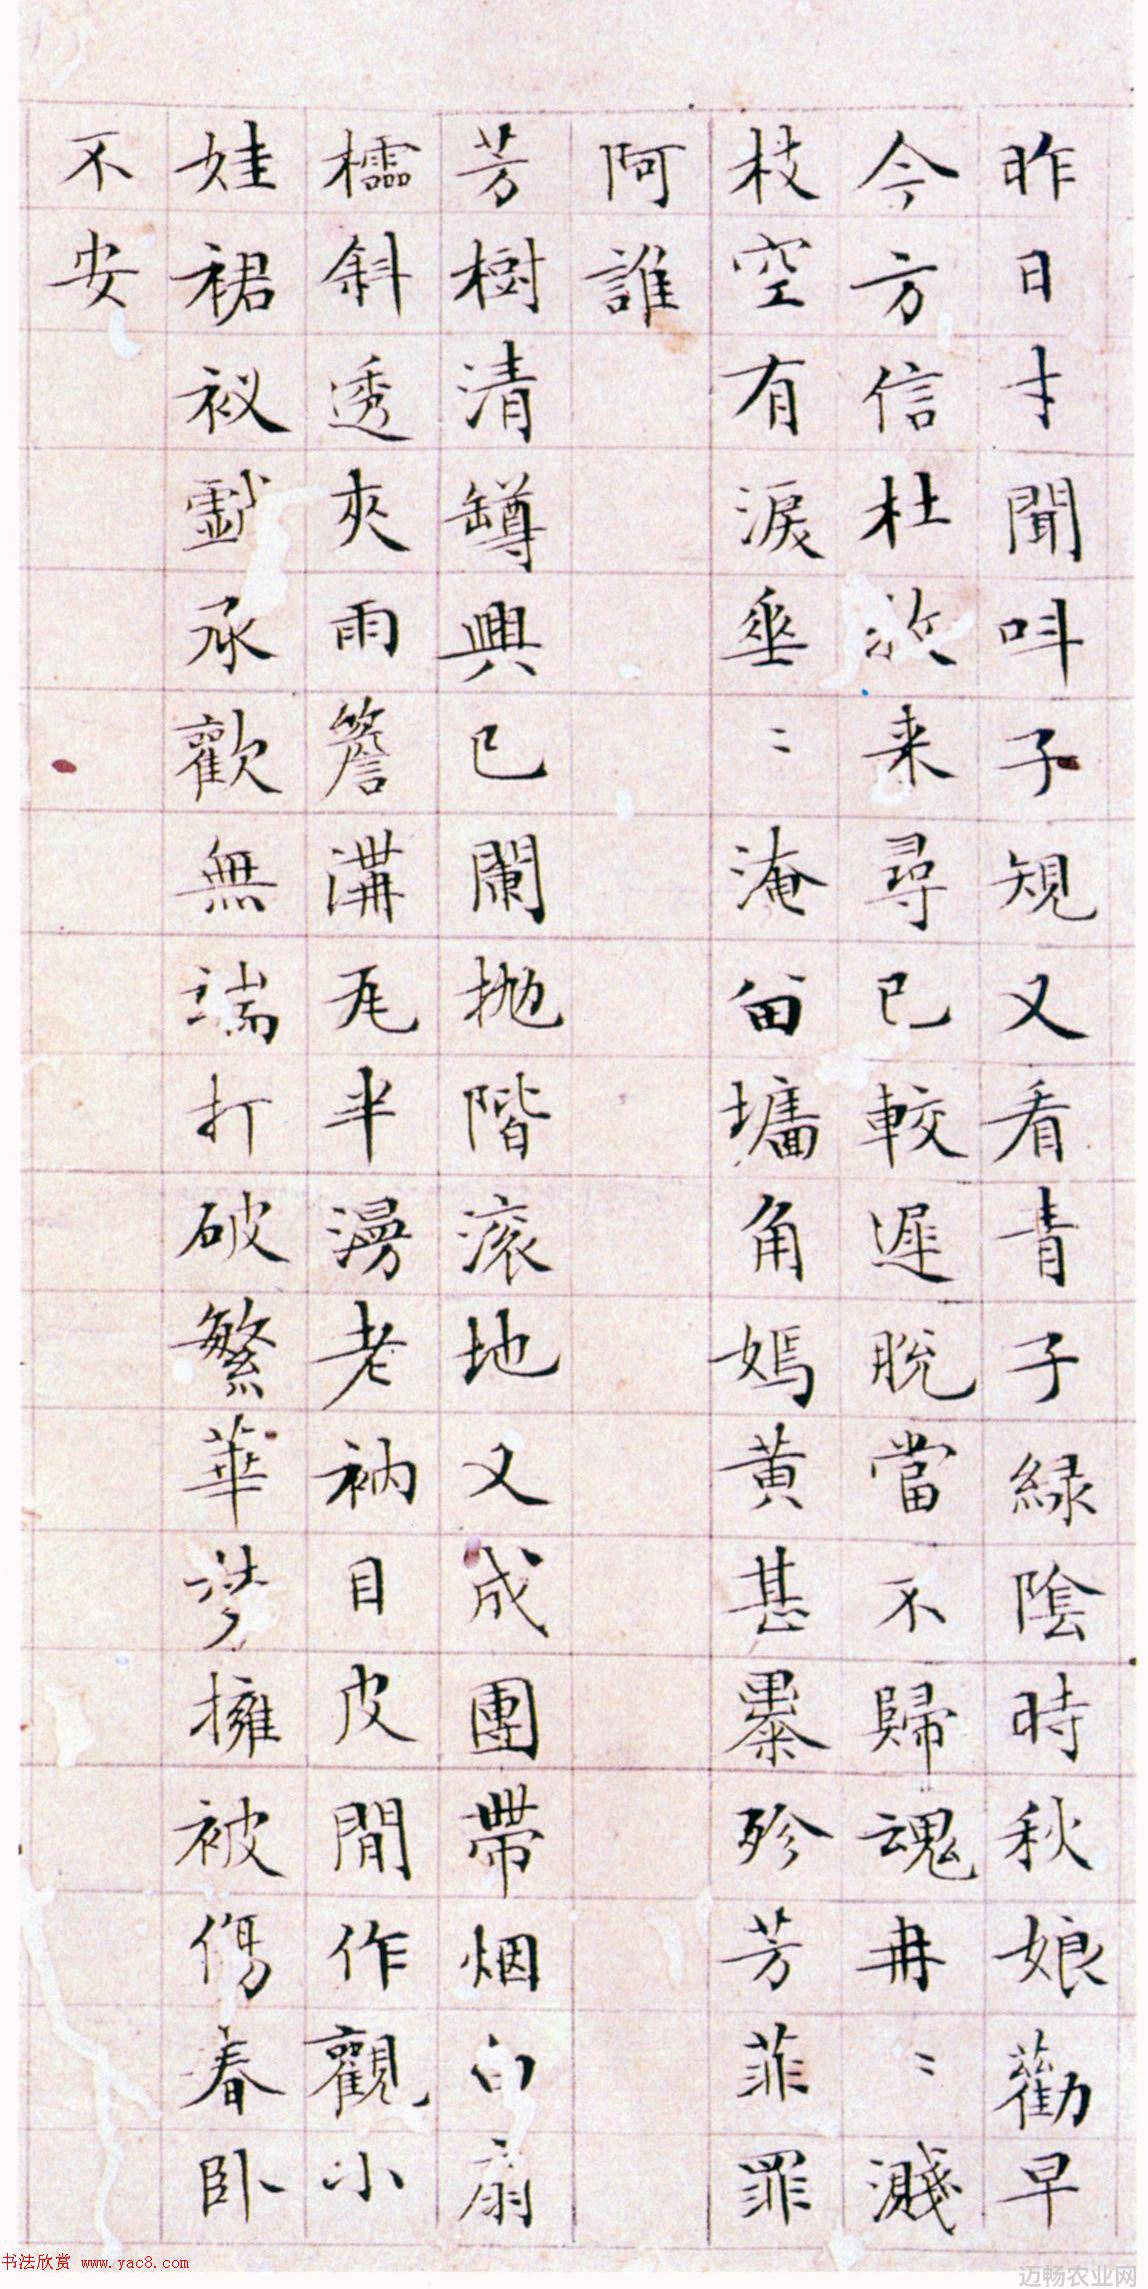 昨日才聞呌子規又看青子緑陰時秋娘勸早
今方信杜放来尋已較遲脫當不歸魂冉〻濺
枝空有淚垂〻淹留墻角嫣黄甚暴殄芳菲罪
阿誰
芳樹清罇興已闌抛階滚地又成團帶烟白扇
櫺斜透夾雨簷溝瓦半漫老衲目皮閒作觀小
娃裙衩戲承歡無端打破繁華夢擁被傷春卧
不安
书法欣赏 www.yac8.com
迈畅农业网